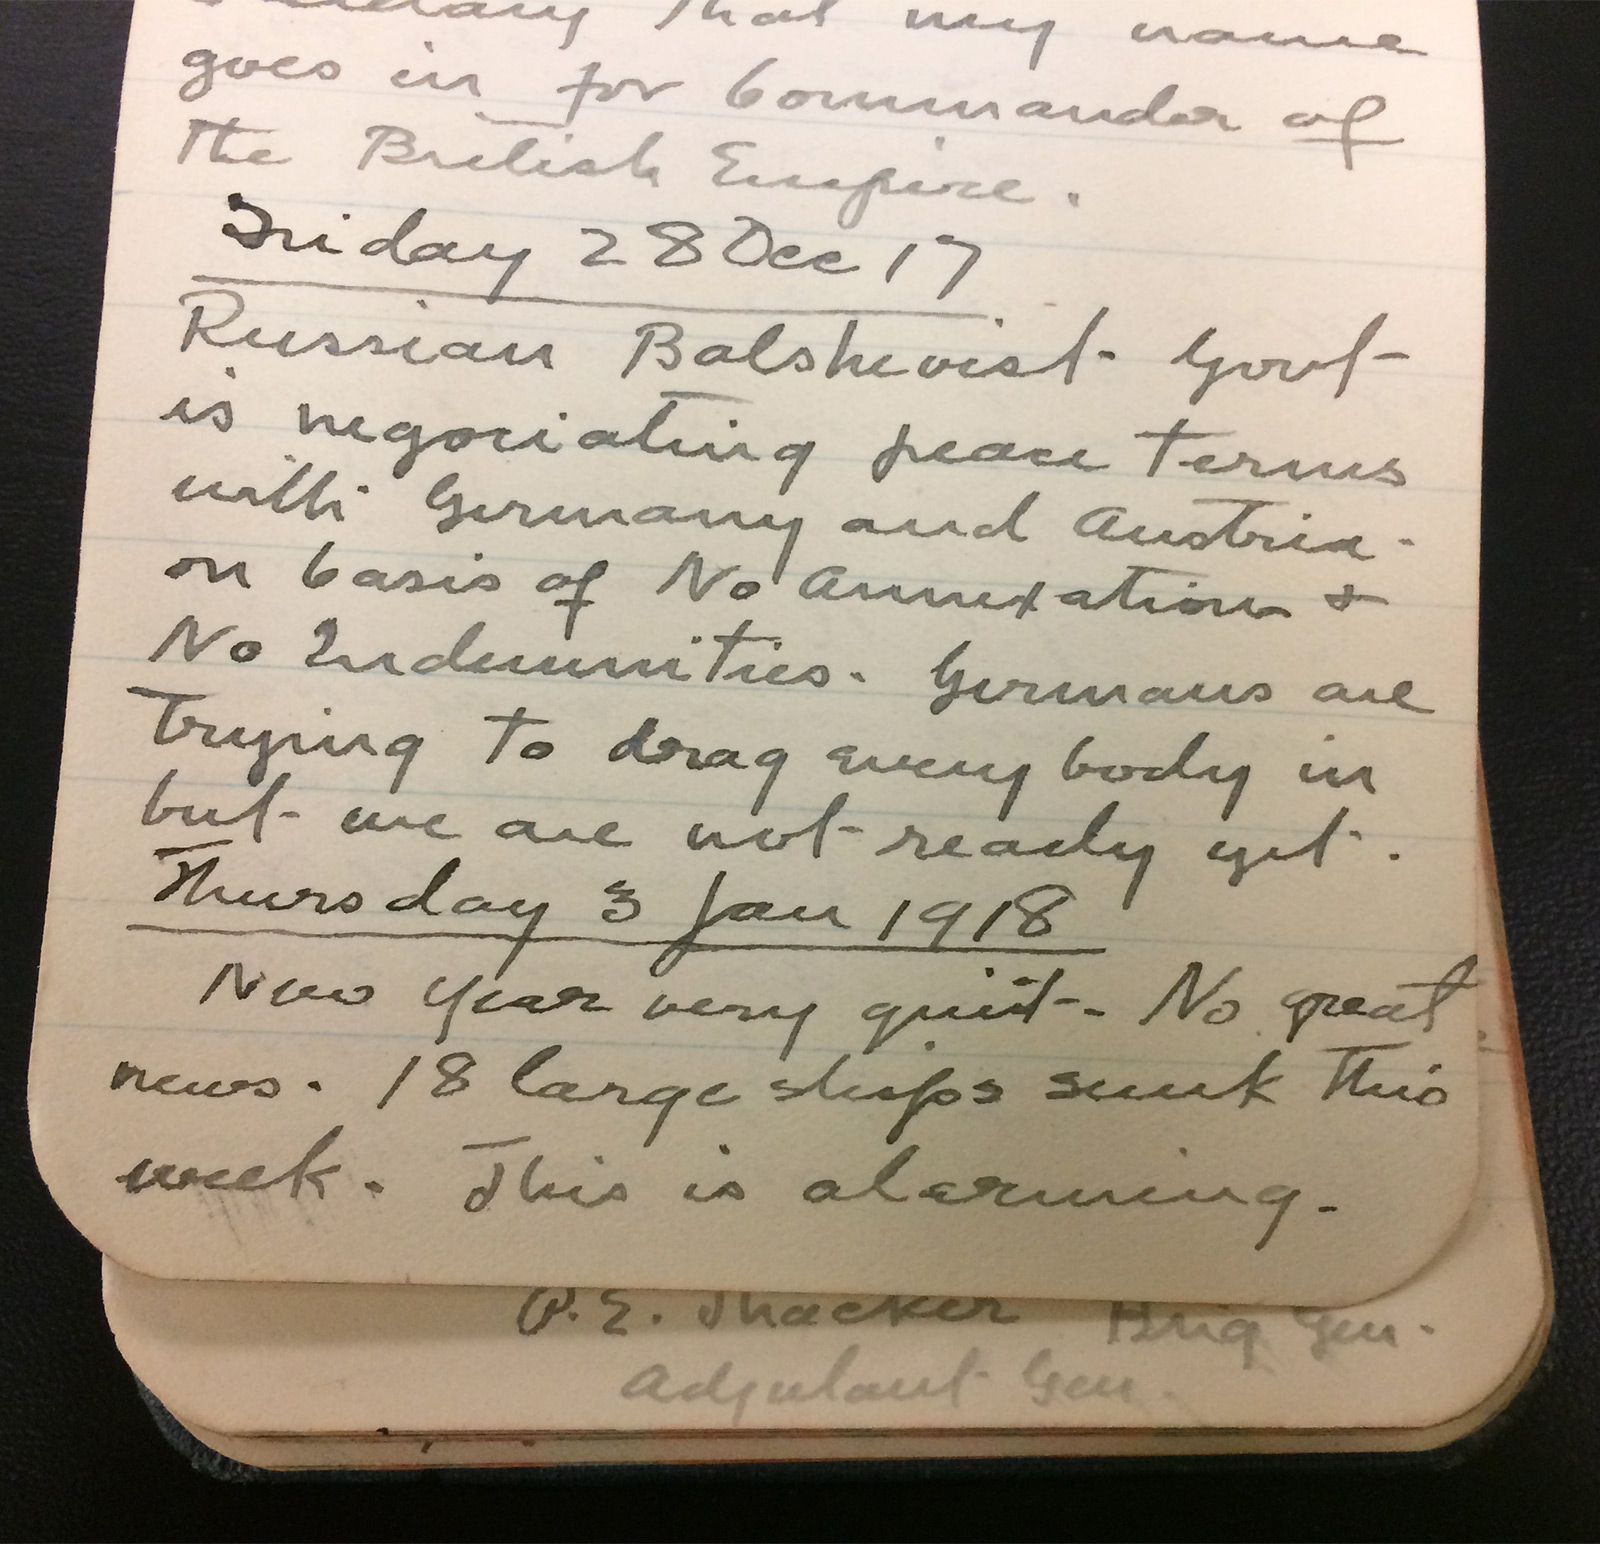 that my name
goes in for Commander of
the British Empire.
Friday 28 Dec 17
Russian Bolshevist Govt
is negociating peace terms
with Germany and Austria.
on basis of No Annexation &
No Indemnities. Germans are
trying to drag every body in
but we are not ready yet.
Thursday 3 Jan 1918
New Year very quiet. No great
news. 18 large ships sunk this
week. This is alarming.
P.E. Thacker Brig Gen.
Adjutant Gen.